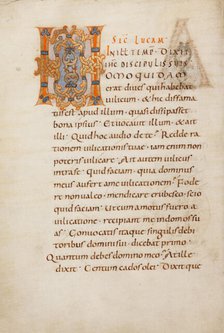 SEC LUCAM
IN ILL TEMP DIXIT
IHC DISCIPULIS SUIS
HOMO QUIDAM
erat diues qui habebat
uilicum & hic diffama
tus est apud illum quasi dissipasset
bona ipsius Et uocauit illum
& ait illi Quid hoc audio de te Redde ra
tionem uilicationis tuae iam enim non
poteris uilicare Ait autem uilicus
intra se Quid faciam quia dominus
meus aufert a me uilicationem Fode
re non ualeo mendicare erubesco scio
quid faciam Ut cum amotus fuero a
uilicatione recipiant me in domos su
as Conuocatis itaque singulis debi
toribus domini sui dicebat primo
Quantum debes domino meo At ille
dixit Centum cados olei Dixitque